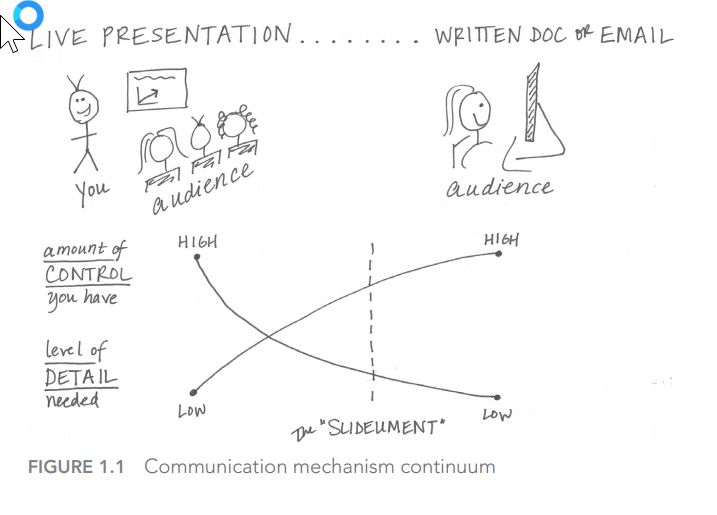 LIVE PRESENTATION ........ WRITTEN DOC OR EMAIL
You
audience
audience
amount of
CONTROL
you have
HIGH
HIGH
level of
DETAIL
needed
LOW
LOW
The "SLIDEUMENT"
FIGURE 1.1 Communication mechanism continuum